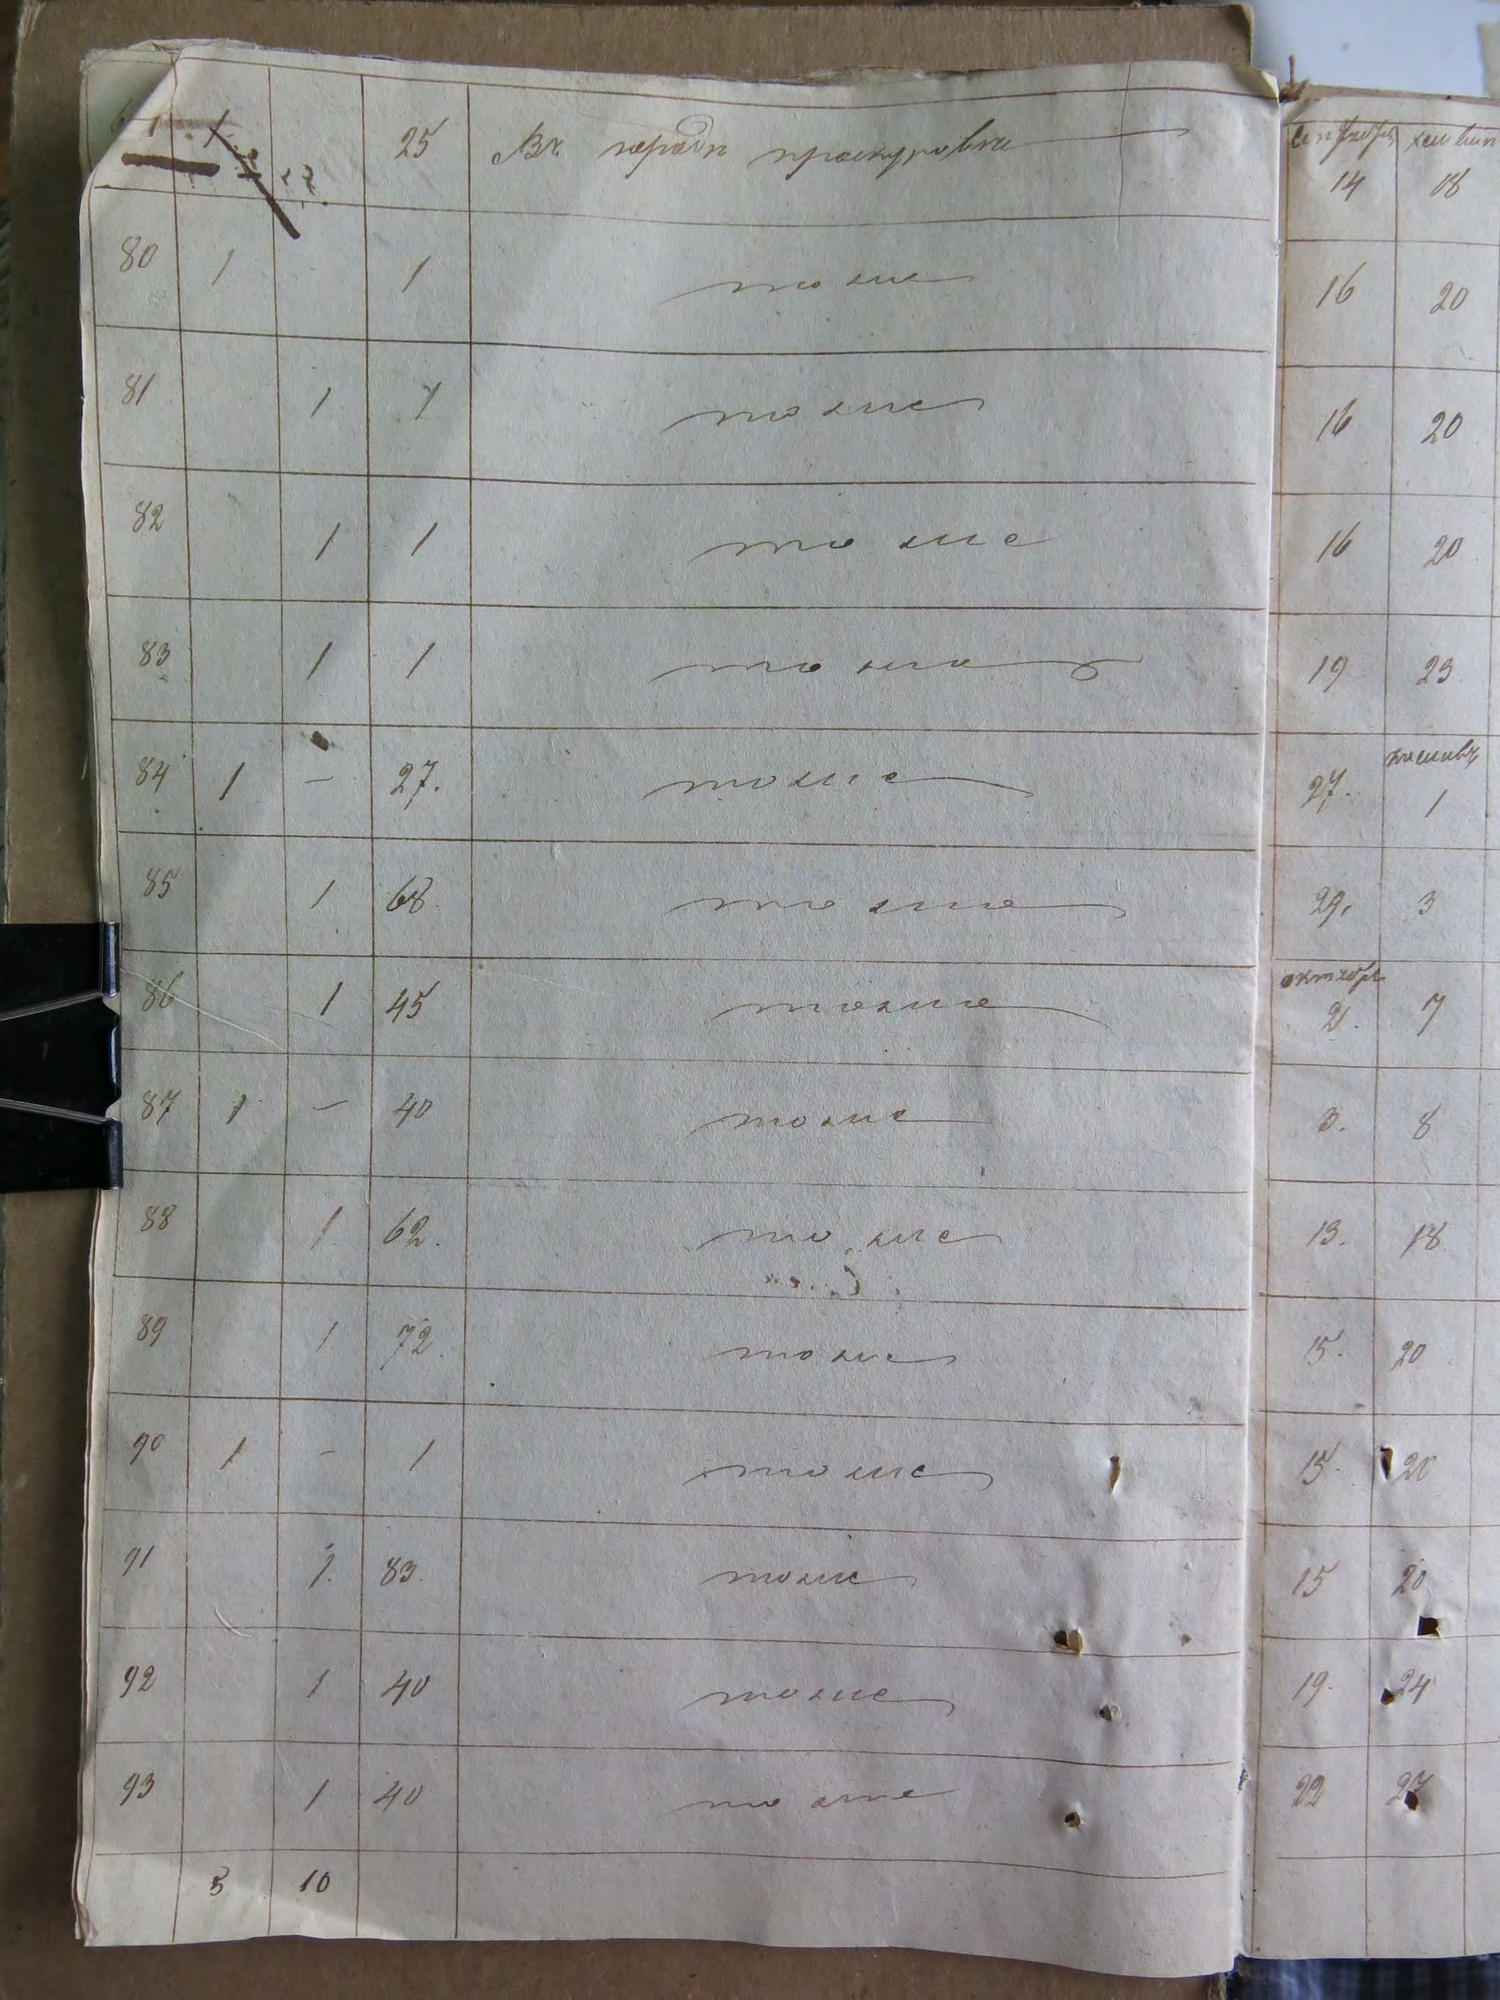 25 Въ городѣ проскуровѣ 14 18
80 1 1 тоже 16 20
81 1 1 тоже 16 20
82 1 1 тоже 16 20
83 1 1 тоже 19 23
84 1 – 27. тоже 27. 1
85 1 68. тоже 29. 3
октябрь
86 1 45 тоже 2. 7
87 1 – 40 тоже 3. 8
88 1 62. тоже 13. 18
89 1 72. тоже 15. 20
90 1 - 1 тоже 15. 20
91 1. 83. тоже 15 20
92 1 40 тоже 19. 24
93 1 40 тоже 22 27
5 10